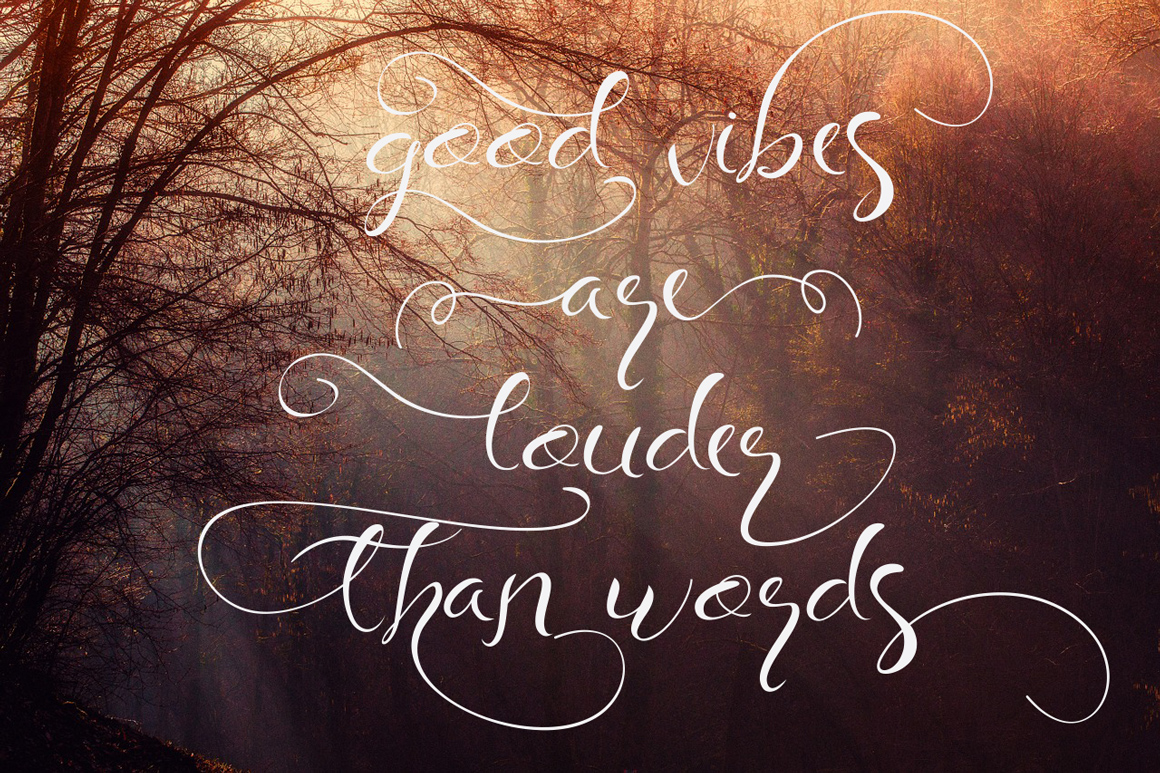 good vibes
are
louder
than words